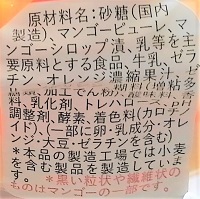 原材料名:砂糖(国内
製造)、マンゴーピューレ、マン
ゴーシロップ漬、乳等を主
要原料とする食品、牛乳、ゼラ
チン、オレンジ濃縮果汁、
糖類、加工でん粉、糊料(増粘多
料、乳化剤、トレハロース、
調整剤、酵素、着色料(カロテ
イド)、(一部に卵・乳成分・オレ
ンジ・大豆・ゼラチンを含む)
*本品の製造工場では小麦
を含む製品を製造しています。
*黒い粒状や繊維状の
ものはマンゴーの一部です。